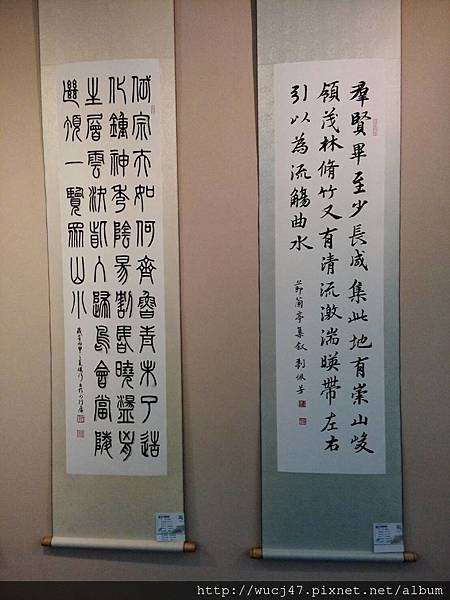 羣賢畢至少長咸集此地有崇山峻
領茂林脩竹又有清流激湍暎帶左右
引以為流觴曲水
節蘭亭集敘 劉佩
岱宗夫如何齊魯青未了造
化鍾神秀陰陽割昏曉盪胸
生層雲決眥入歸鳥會當陵
絕頂一覽眾山小
http://wucj47.pixnet.net/album